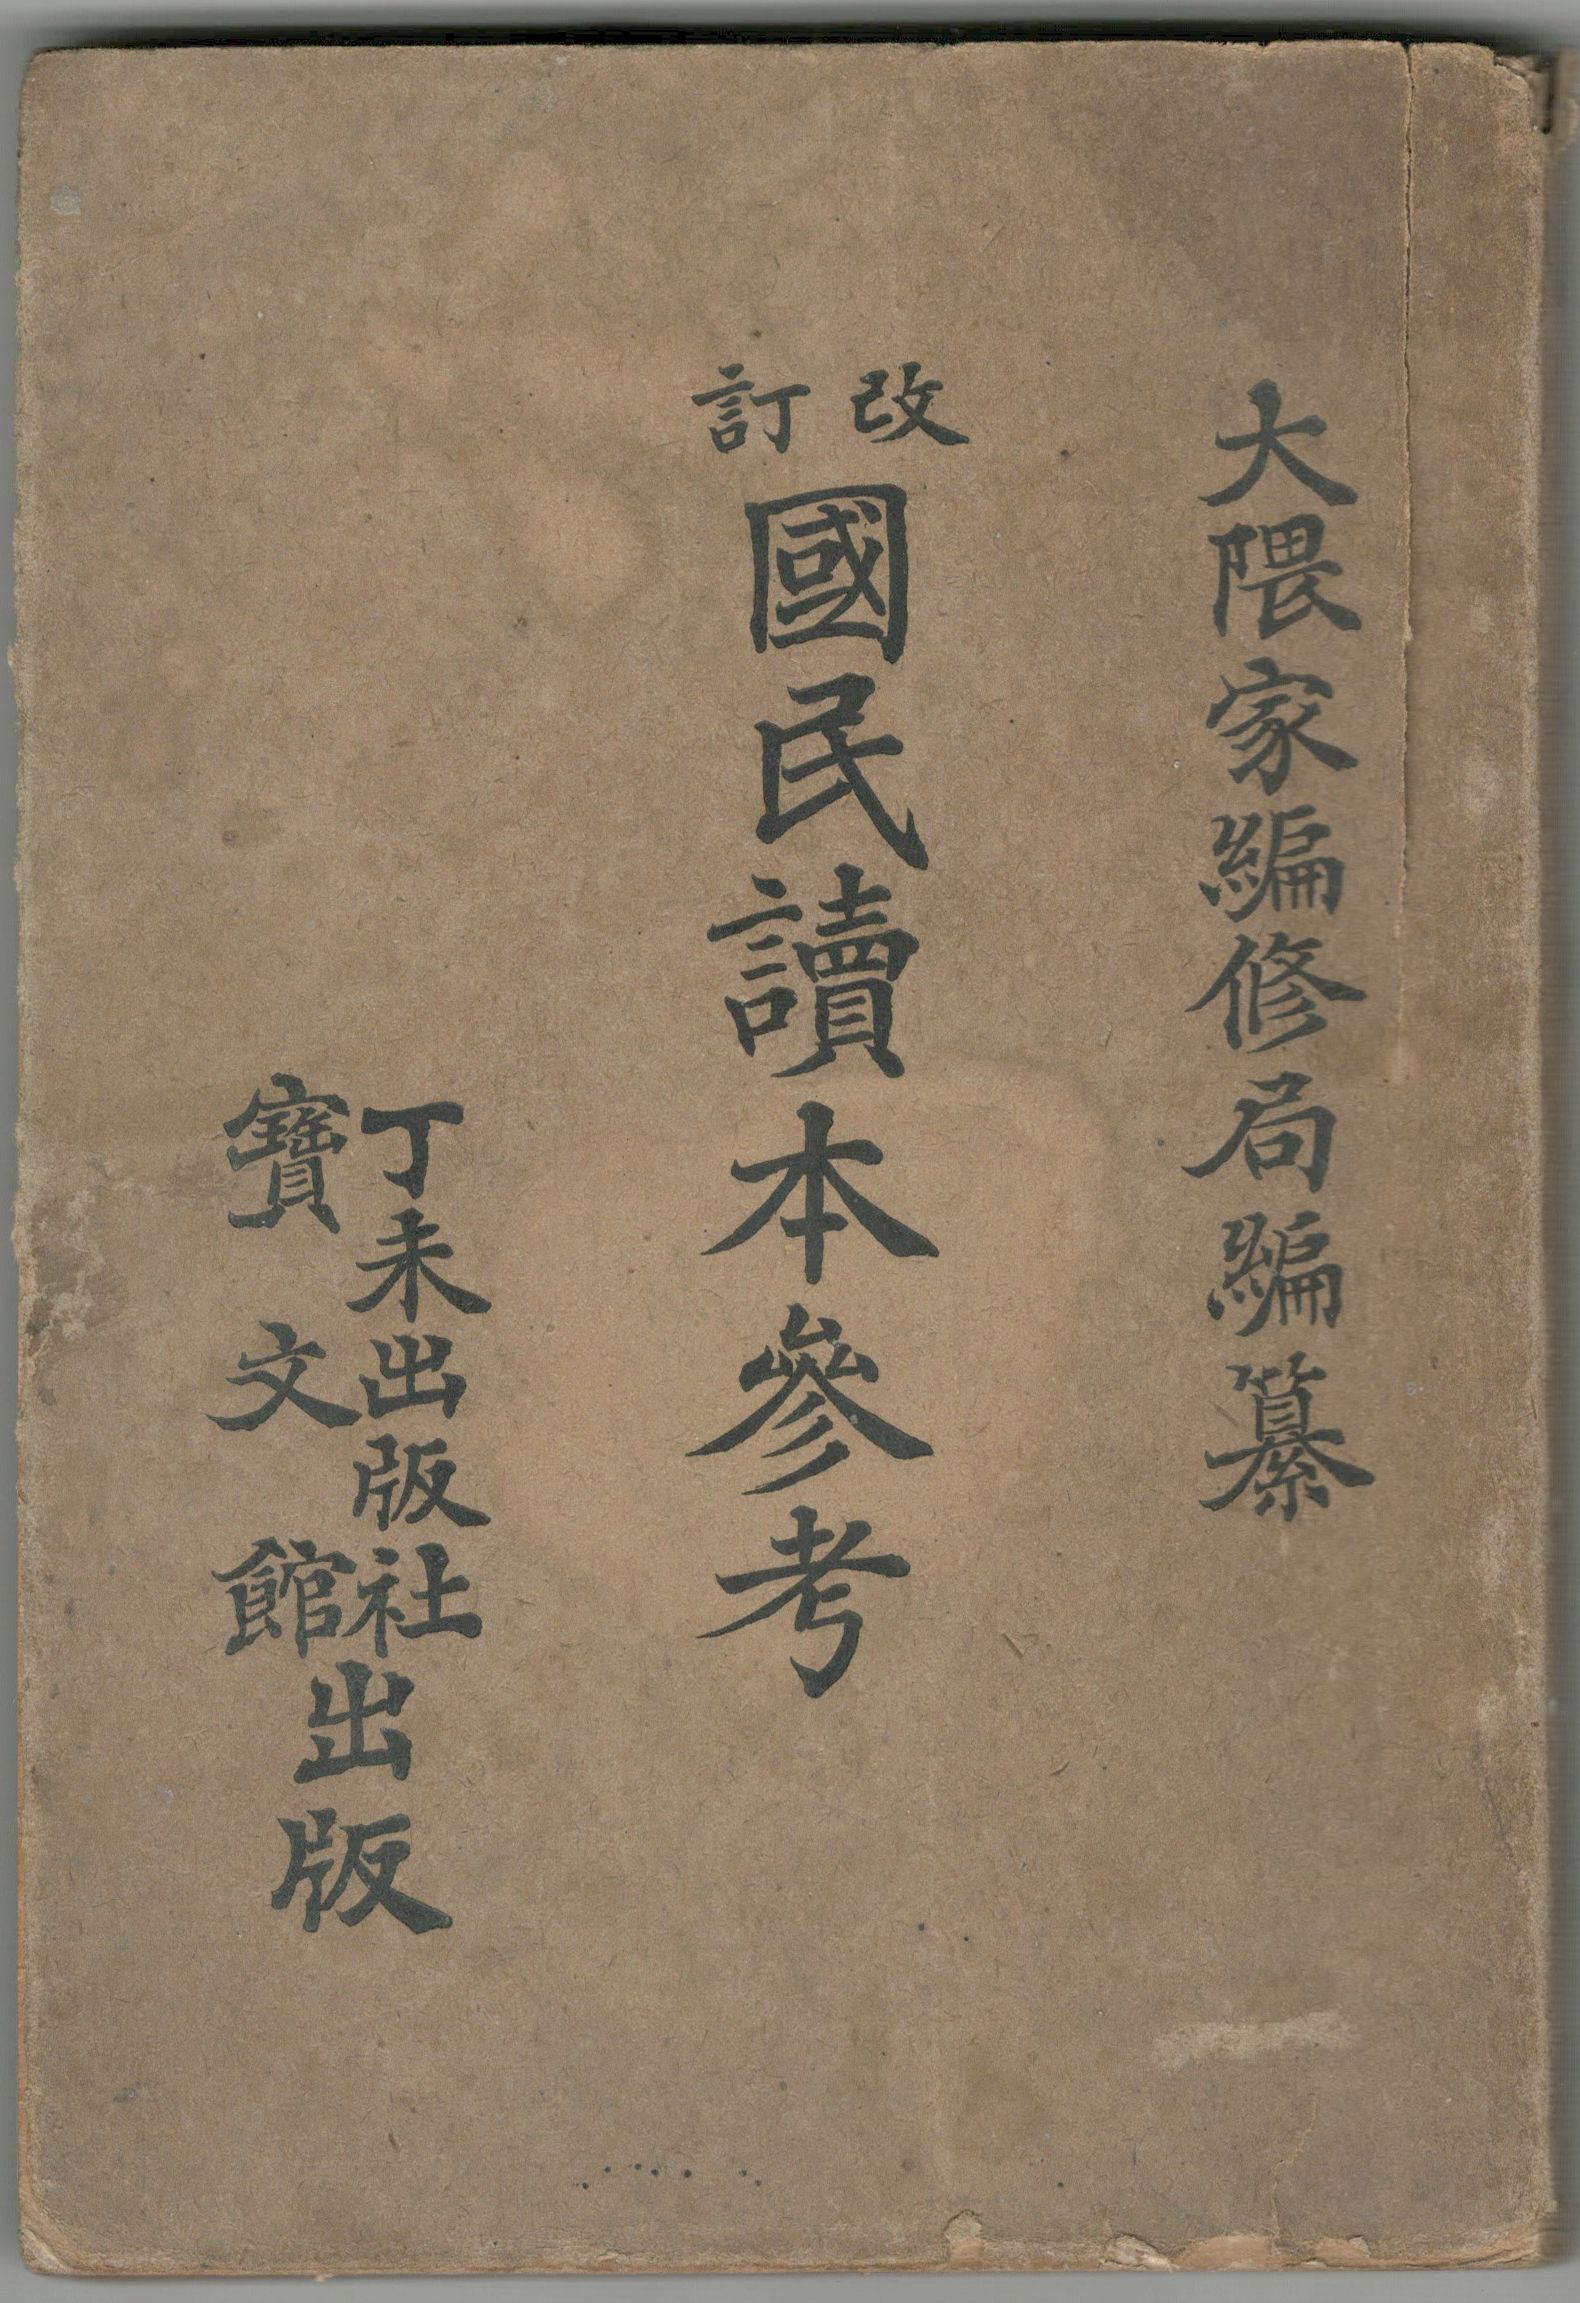 大隈家編修局編纂
改訂
國民讀本參考
丁未出版社
寶文館
出版